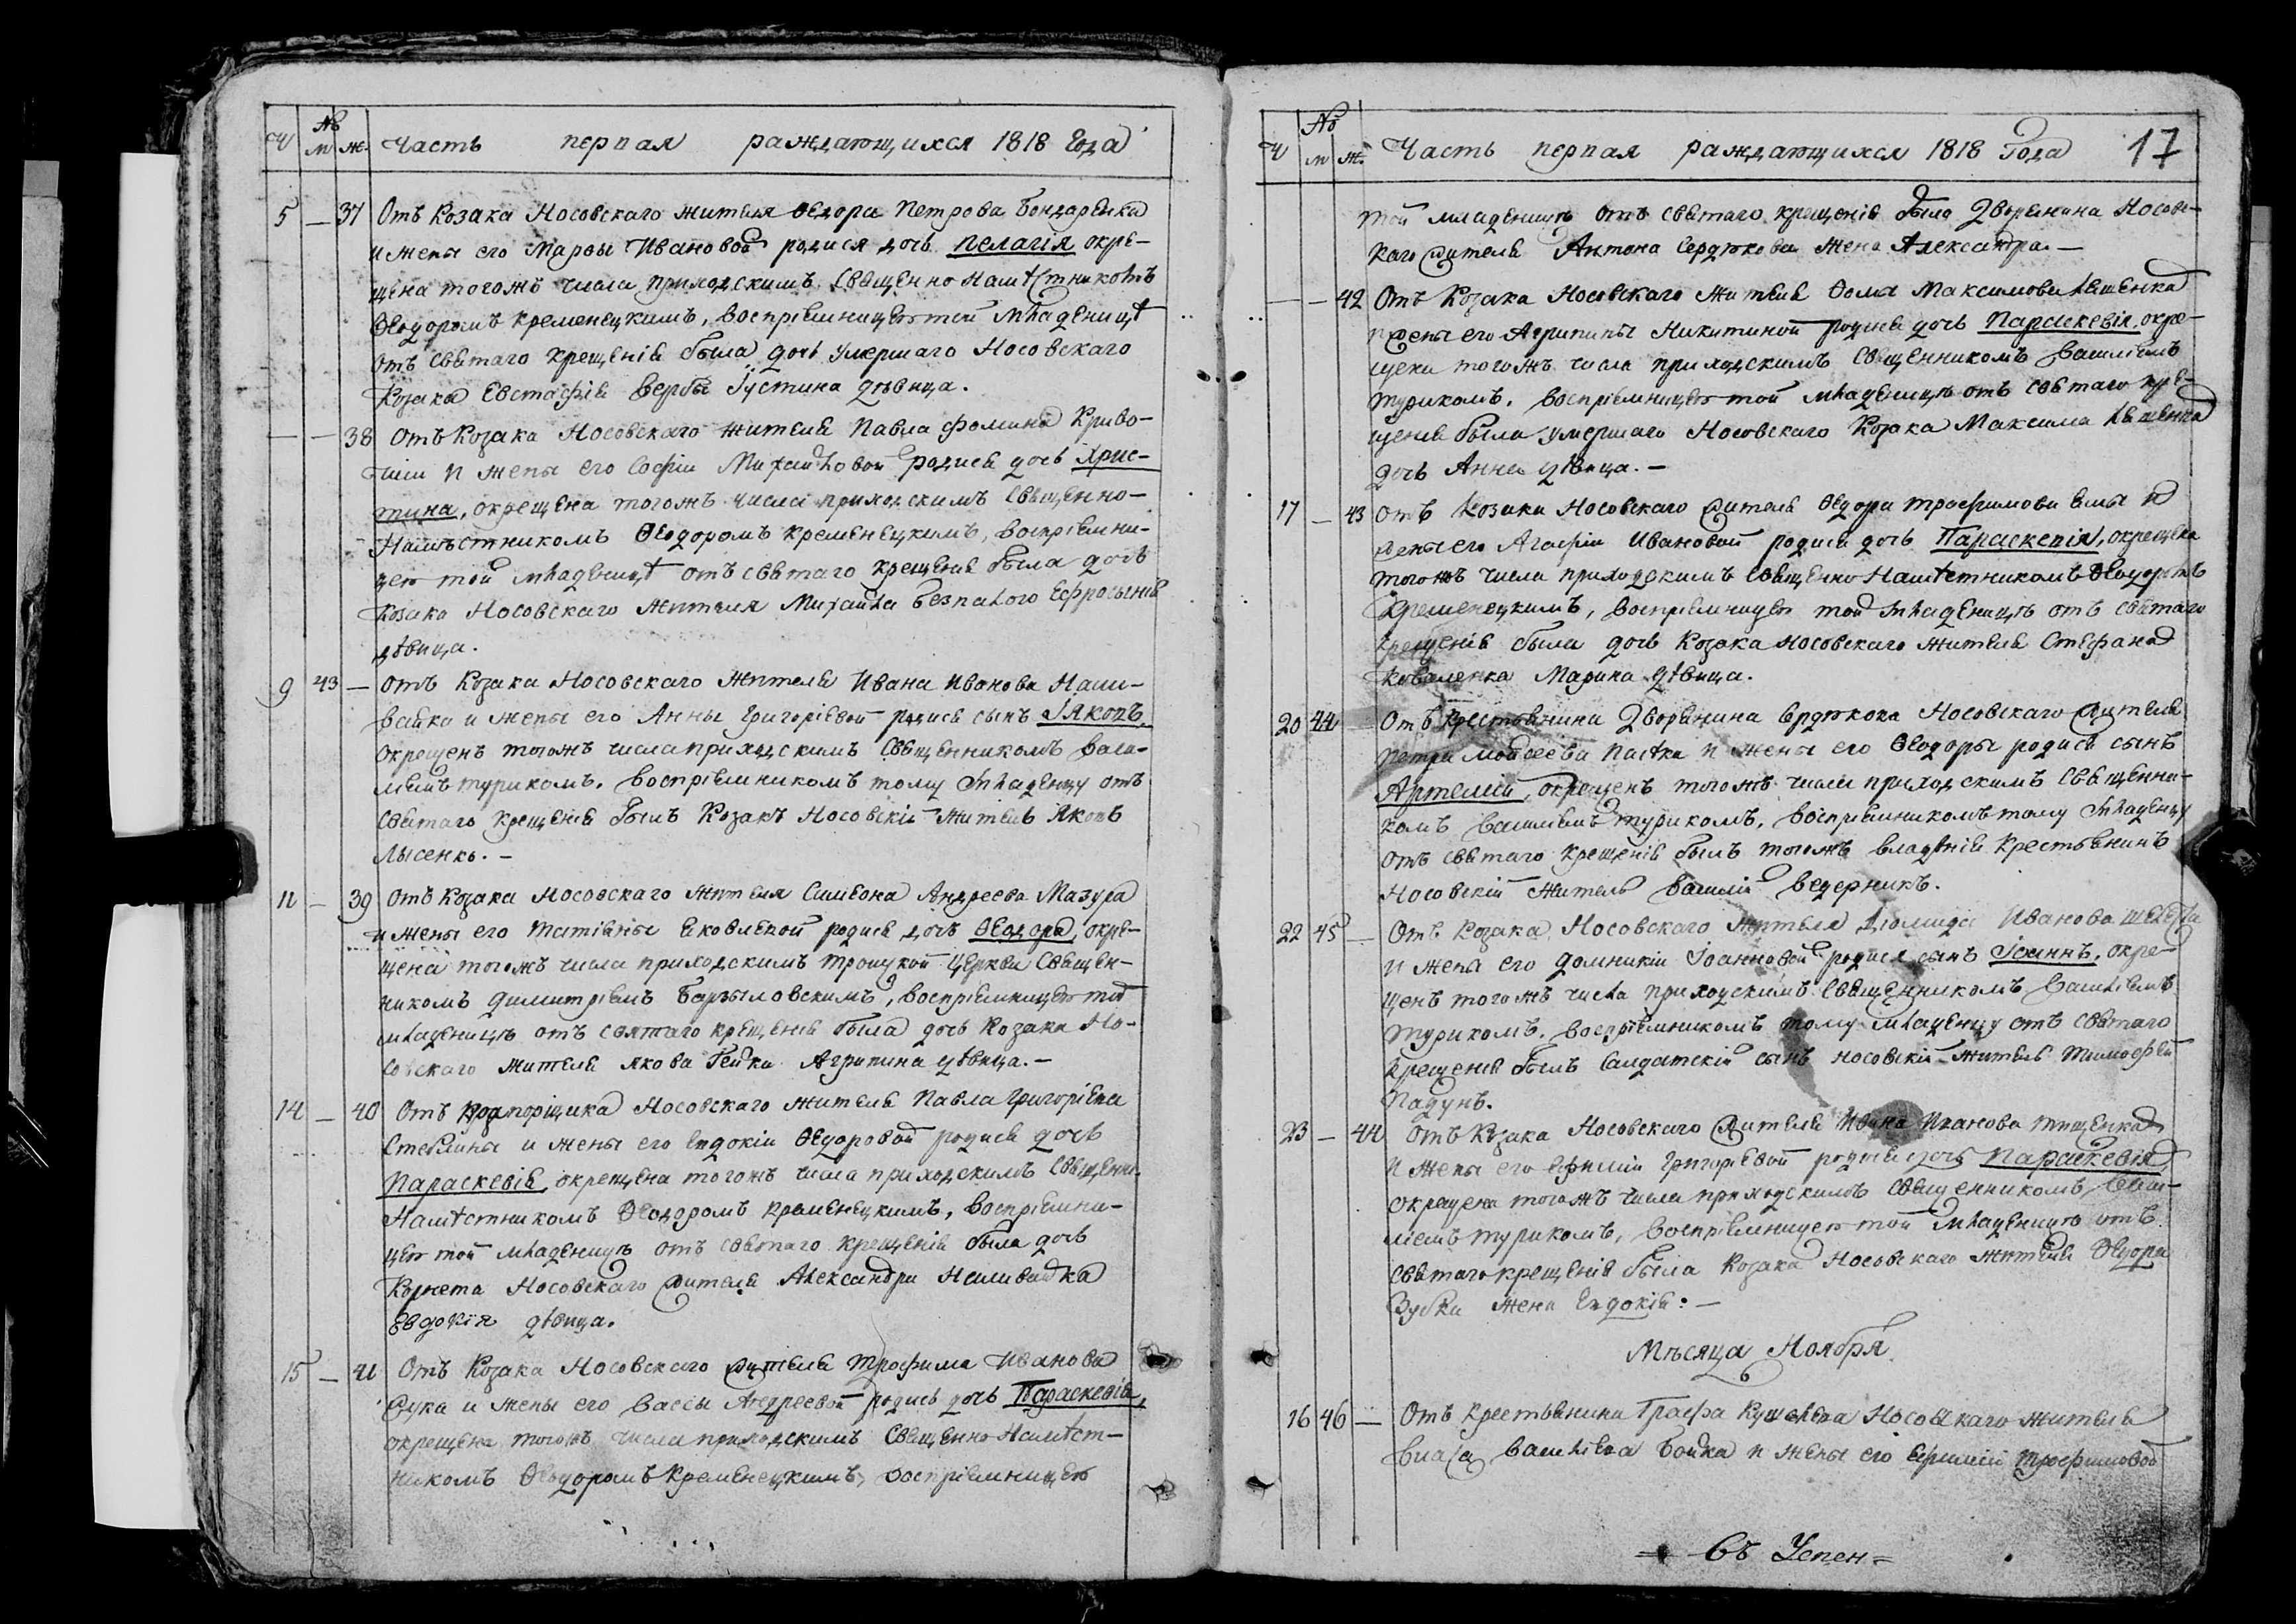 Ч № м ж. Часть первая раждающихся 1818 Года
5 — 37 Отъ Козака Носовскаго жителя Ѳедора Петрова Бондаренка
и жены его Марѳы Ивановой родися дочь Пелагія окре-
щена тогожъ числа приходскимъ Священно Намѣстникомъ
Ѳеодоромъ Кременецкимъ, воспріемницею той младеницѣ
отъ святаго крещенія была дочь умершаго Носовскаго
Козака Евстафія Вербы Іустина дѣвица.
— — 38 Отъ Козака Носовскаго жителя Павла Фомина Криво-
шіи и жены его Софіи Михайловой родися дочь Хрис-
тина, окрещена тогожъ числа приходскимъ Священно-
Намѣстникомъ Ѳеодоромъ Кременецкимъ, воспріемни-
цею той младеницѣ отъ святаго крещенія была дочь
Козака Носовскаго жителя Михаила Безпалого Ефросынія
дѣвица.
9 43 — Отъ Козака Носовскаго жителя Ивана Иванова Нали-
вайка и жены его Анны Григоріевой родися сынъ Іяковъ,
окрещенъ тогожъ числа приходскимъ Священникомъ Васи-
ліемъ Турикомъ. Воспріемникомъ тому младенцу отъ
святаго крещенія былъ Козакъ Носовскій житель Яковъ
Лысенко. —
11 — 39 Отъ Козака Носовскаго жителя Симеона Андреева Мазура
и жены его Татіяны Яковлевой родися дочь Ѳеодора, окре-
щена тогожъ числа приходскимъ Троицкой Церкви Священ-
никомъ Димитріемъ Барзыловскимъ, воспріемницею той
младеницѣ отъ святаго крещенія была дочь Козака Но-
совскаго жителя Якова Гейка Агрипина дѣвица. —
14 — 40 Отъ Подпорщика Носовскаго жителя Павла Григоріева
Стеблины и жены его Евдокіи Ѳедоровой родися дочь
Параскевія, окрещена тогожъ числа приходскимъ Священно-
Намѣстникомъ Ѳеодоромъ Кременецкимъ, воспріемни-
цею той младеницѣ отъ святаго крещенія была дочь
Корнета Носовскаго жителя Александра Наливайка
Евдокія дѣвица.
15 — 41 Отъ Козака Носовскаго жителя Трофима Иванова
и жены его Вассы Андреевой родися дочь Параскевія,
окрещена тогожъ числа приходскимъ Священно Намѣст-
никомъ Ѳеодоромъ Кременецкимъ, воспріемницею
Ч № м ж. Часть первая раждающихся 1818 Года 17
той младеницѣ отъ святаго крещенія была Дворянина Носовс-
каго жителя Антона Сердюкова жена Александра. —
— — 42 Отъ Козака Носовскаго жителя Ѳомы Максимова
и жены его Агрипины Никитиной родися дочь Параскевія, окре-
щена тогожъ числа приходскимъ Священникомъ Василіемъ
Турикомъ. Воспріемницею той младеницѣ отъ святаго кре-
щенія была умершаго Носовскаго Козака Максима
дочь Анна дѣвица. —
17 — 43 Отъ Козака Носовскаго жителя Ѳедора Трофимова и
жены его Агафіи Ивановой родися дочь Параскевія, окрещена
тогожъ числа приходскимъ Священно Намѣстникомъ Ѳеодоромъ
Кременецкимъ, воспріемницею той младеницѣ отъ святаго
крещенія была дочь Козака Носовскаго жителя Стефана
Коваленка Марина дѣвица.
20 44 — Отъ Крестьянина Дворянина Сердюкова Носовскаго жителя
Петра Моисеева и жены его Ѳеодоры родися сынъ
Артемій, окрещенъ тогожъ числа приходскимъ Священни-
комъ Василіемъ Турикомъ, воспріемникомъ тому младенцу
отъ святаго крещенія былъ тогожъ владѣнія Крестьянинъ
Носовскій житель Василій Ведерникъ.
22 45 — Отъ Козака Носовскаго жителя Діомида Иванова
и жены его Домникіи Іоанновой родися сынъ Іоаннъ, окре-
щенъ тогожъ числа приходскимъ Священникомъ Василіемъ
Турикомъ. Воспріемникомъ тому младенцу отъ святаго
крещенія былъ Салдатскій сынъ Носовскій житель Тимофей
Падунъ.
23 — 44 Отъ Козака Носовскаго жителя Ивана Иванова Тищенка
и жены его Ефиміи Григоріевой родися дочь Параскевія,
окрещена тогожъ числа приходскимъ Священникомъ Васи-
ліемъ Турикомъ, воспріемницею той младеницѣ отъ
святаго крещенія была Козака Носовскаго жителя Ѳедора
Зубка жена Евдокія: —
Мѣсяца Ноября
16 46 — Отъ Крестьянина Графа Кушелева Носовскаго жителя
Власа Василіева Бойка и жены его Ефиміи Трофимовой
Съ Успен=